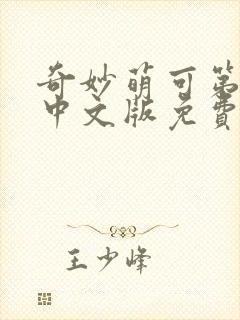 奇妙萌可第
中文版免费
王少峰